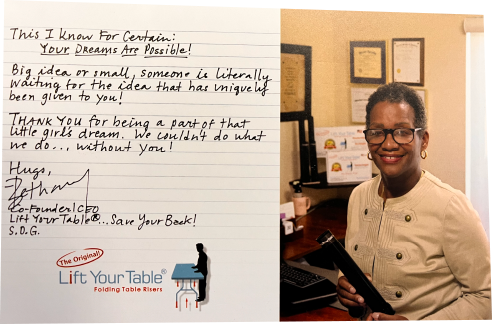 This I Know For Certain:
Your Dreams Are Possible!
Big idea or small, someone is literally
waiting for the idea that has uniquely
been given to you!
THANK YOU for being a part of that
little girl's dream. We couldn't do what
we do..., without you!
Hugs,
Bethany
Co-Founder/CEO
Lift Your Table®...Save Your Back!
S.D.G.
The Original!
Lift Your Table®
Folding Table Risers